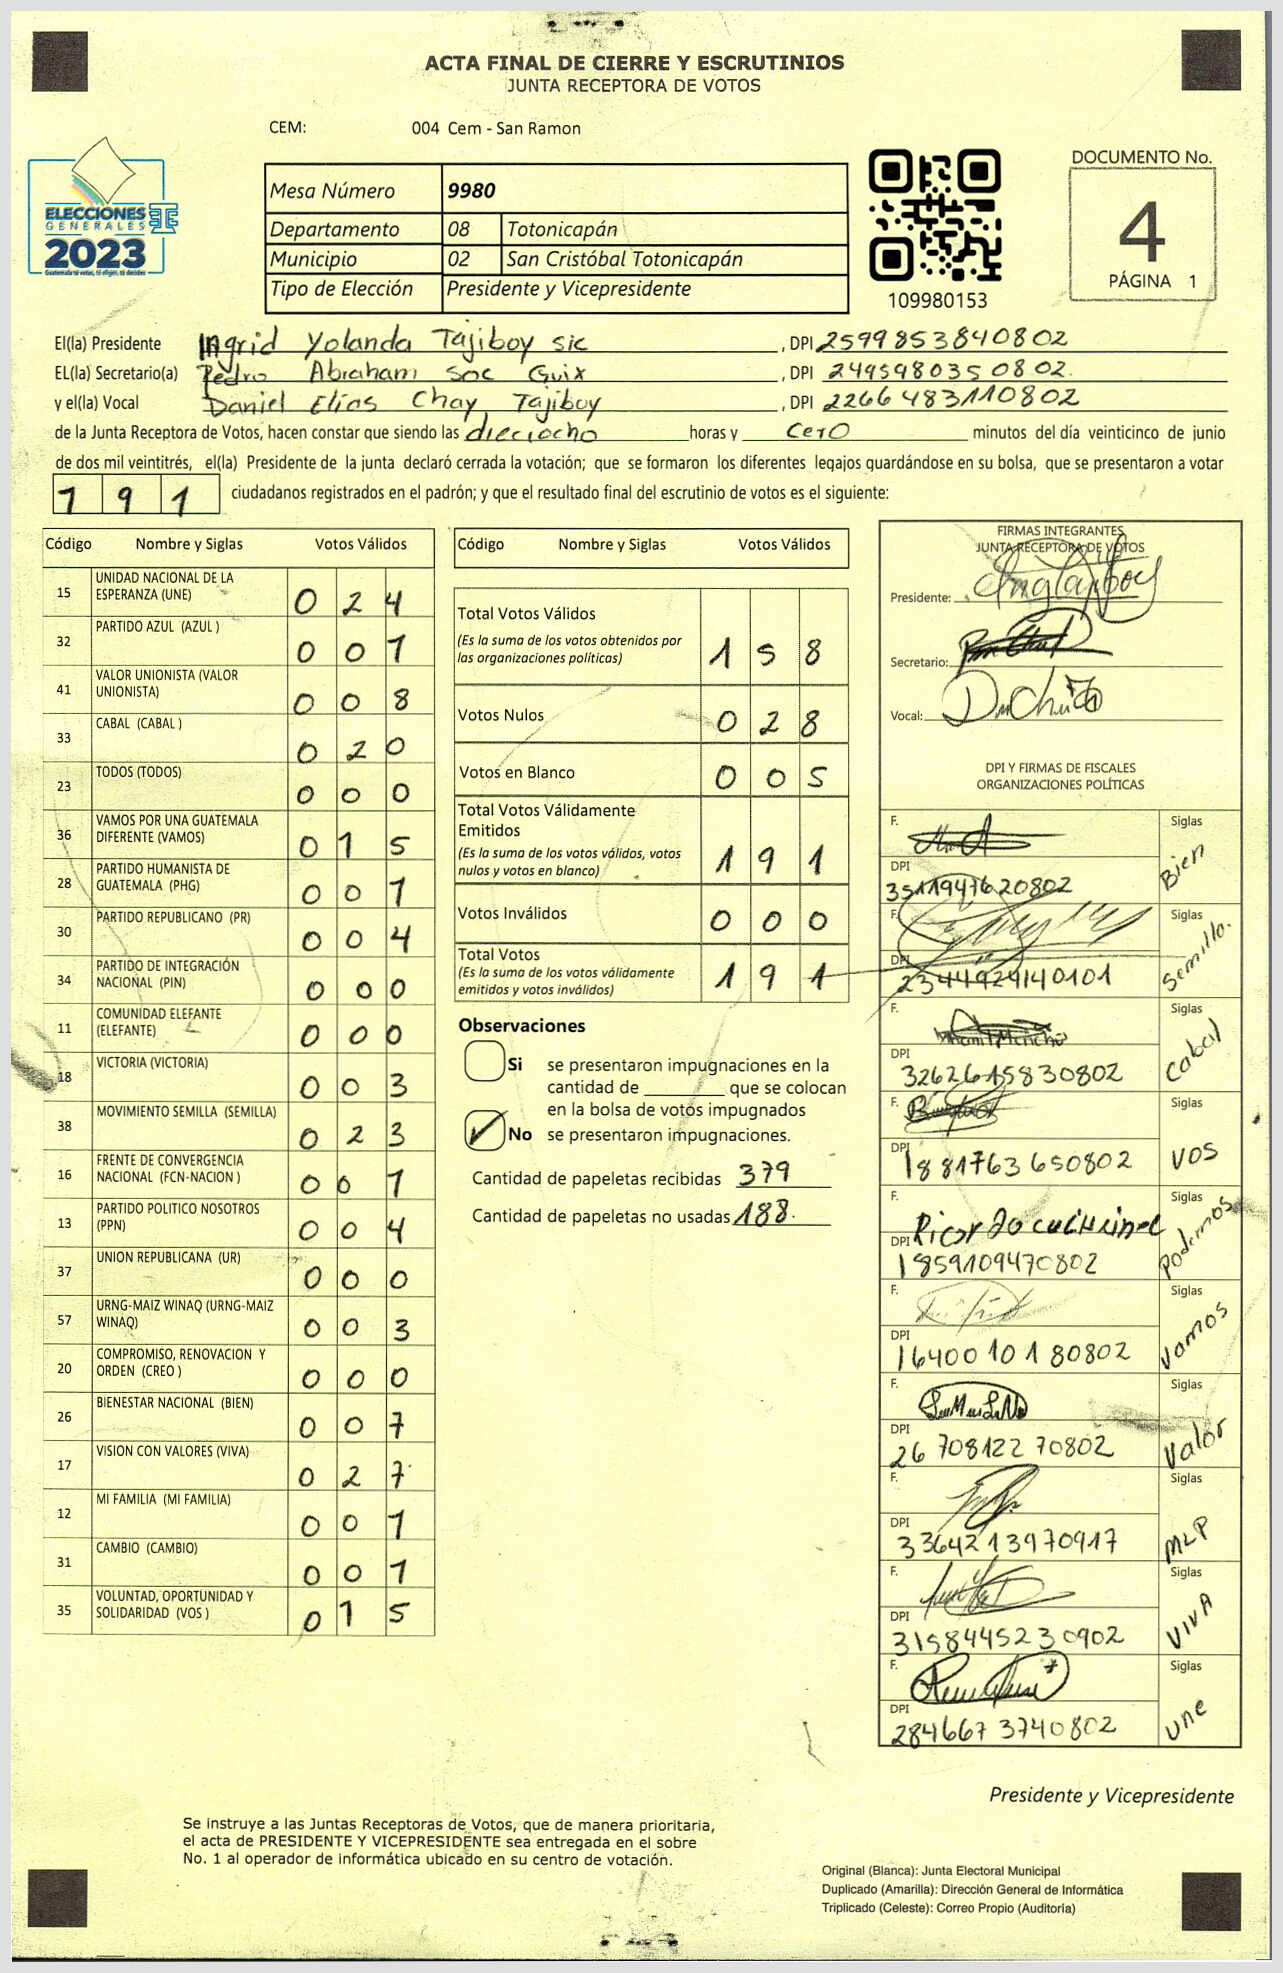 ACTA FINAL DE CIERRE Y ESCRUTINIOS
JUNTA RECEPTORA DE VOTOS
CEM: 004 Cem - San Ramon
ELECCIONES
GENERALES
2023
Guatemala tú votas, tú eliges, tú decides
Mesa Número 9980
Departamento 08 Totonicapán
Municipio 02 San Cristóbal Totonicapán
Tipo de Elección Presidente y Vicepresidente
109980153
DOCUMENTO No.
4
PÁGINA 1
El(la) Presidente Ingrid Yolanda Tajiboy Sic , DPI 2599853840802
EL(la) Secretario(a) Pedro Abraham Soc Guix , DPI 2495980350802
y el(la) Vocal Daniel Elías Chay Tajiboy , DPI 2266483110802
de la Junta Receptora de Votos, hacen constar que siendo las dieciocho horas y cero minutos del día veinticinco de junio
de dos mil veintitrés, el(la) Presidente de la junta declaró cerrada la votación; que se formaron los diferentes legajos guardándose en su bolsa, que se presentaron a votar
191 ciudadanos registrados en el padrón; y que el resultado final del escrutinio de votos es el siguiente:
Código Nombre y Siglas Votos Válidos
15 UNIDAD NACIONAL DE LA ESPERANZA (UNE) 0 2 4
32 PARTIDO AZUL (AZUL ) 0 0 1
41 VALOR UNIONISTA (VALOR UNIONISTA) 0 0 8
33 CABAL (CABAL ) 0 2 0
23 TODOS (TODOS) 0 0 0
36 VAMOS POR UNA GUATEMALA DIFERENTE (VAMOS) 0 1 5
28 PARTIDO HUMANISTA DE GUATEMALA (PHG) 0 0 1
30 PARTIDO REPUBLICANO (PR) 0 0 4
34 PARTIDO DE INTEGRACIÓN NACIONAL (PIN) 0 0 0
11 COMUNIDAD ELEFANTE (ELEFANTE) 0 0 0
18 VICTORIA (VICTORIA) 0 0 3
38 MOVIMIENTO SEMILLA (SEMILLA) 0 2 3
16 FRENTE DE CONVERGENCIA NACIONAL (FCN-NACION ) 0 0 1
13 PARTIDO POLITICO NOSOTROS (PPN) 0 0 4
37 UNION REPUBLICANA (UR) 0 0 0
57 URNG-MAIZ WINAQ (URNG-MAIZ WINAQ) 0 0 3
20 COMPROMISO, RENOVACION Y ORDEN (CREO ) 0 0 0
26 BIENESTAR NACIONAL (BIEN) 0 0 7
17 VISION CON VALORES (VIVA) 0 2 7
12 MI FAMILIA (MI FAMILIA) 0 0 1
31 CAMBIO (CAMBIO) 0 0 1
35 VOLUNTAD, OPORTUNIDAD Y SOLIDARIDAD (VOS ) 0 1 5
Código Nombre y Siglas Votos Válidos
Total Votos Válidos 1 5 8
(Es la suma de los votos obtenidos por
las organizaciones políticas)
Votos Nulos 0 2 8
Votos en Blanco 0 0 5
Total Votos Válidamente
Emitidos 1 9 1
(Es la suma de los votos válidos, votos
nulos y votos en blanco)
Votos Inválidos 0 0 0
Total Votos 1 9 1
(Es la suma de los votos válidamente
emitidos y votos inválidos)
Observaciones
Si se presentaron impugnaciones en la
cantidad de que se colocan
en la bolsa de votos impugnados
No se presentaron impugnaciones.
Cantidad de papeletas recibidas 379
Cantidad de papeletas no usadas 188.
FIRMAS INTEGRANTES
JUNTA RECEPTORA DE VOTOS
Presidente:
Secretario:
Vocal:
DPI Y FIRMAS DE FISCALES
ORGANIZACIONES POLÍTICAS
F. Siglas Bien
DPI 3511947620802
F. Siglas Semilla.
DPI 2344924140101
F. Siglas Cabal
DPI 3262615830802
F. Siglas VOS
DPI 1881763650802
F. Siglas Podemos
DPI 1859109470802
F. Siglas Vamos
DPI 1640010180802
F. Siglas Valor
DPI 2670812270802
F. Siglas MLP
DPI 3364213970917
F. Siglas VIVA
DPI 3158445230902
F. Siglas Une
DPI 2846673740802
Presidente y Vicepresidente
Se instruye a las Juntas Receptoras de Votos, que de manera prioritaria,
el acta de PRESIDENTE Y VICEPRESIDENTE sea entregada en el sobre
No. 1 al operador de informática ubicado en su centro de votación.
Original (Blanca): Junta Electoral Municipal
Duplicado (Amarilla): Dirección General de Informática
Triplicado (Celeste): Correo Propio (Auditoría)